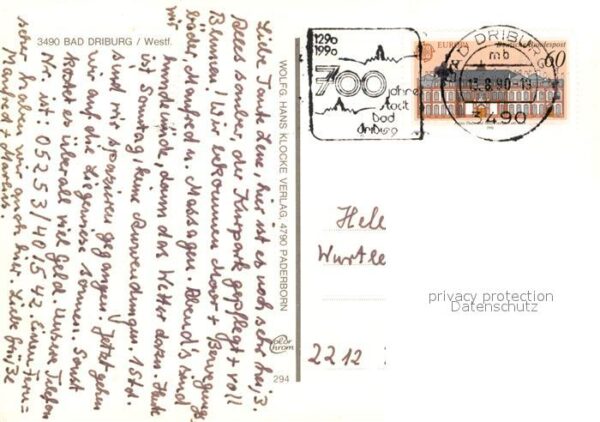 3490 BAD DRIBURG / Westf.
Liebe Tante Lene, hier ist es noch sehr heiß.
Alles sauber, der Kurpark gepflegt + voll
Blumen. Wir bekommen Moor + Bewegungs
bäder, Manfred n. Massagen. Abends sind
wir
hundemüde, dann das Wetter dazu. Heute
ist Sonntag, keine Anwendungen. 1 Std.
sind wir spazieren gegangen. Jetzt gehen
wir auf die Liegewiese sonnen. Sonst
kostet es überall viel Geld. Unsere Telefon
Nr. ist: 05253/401542. Einen Fern=
seher haben wir auch hier. Liebe Grüße
Manfred +
WOLFG HANS KLOCKE VERLAG, 4790 PADERBORN
color
chrom
294
1290
1990
700 jahre
stadt
bad
driburg
BAD DRIBURG
mb
13.8.90-18
3490
EUROPA Deutsche Bundespost
60
Hele
Wurtle
2212
privacy protection
Datenschutz